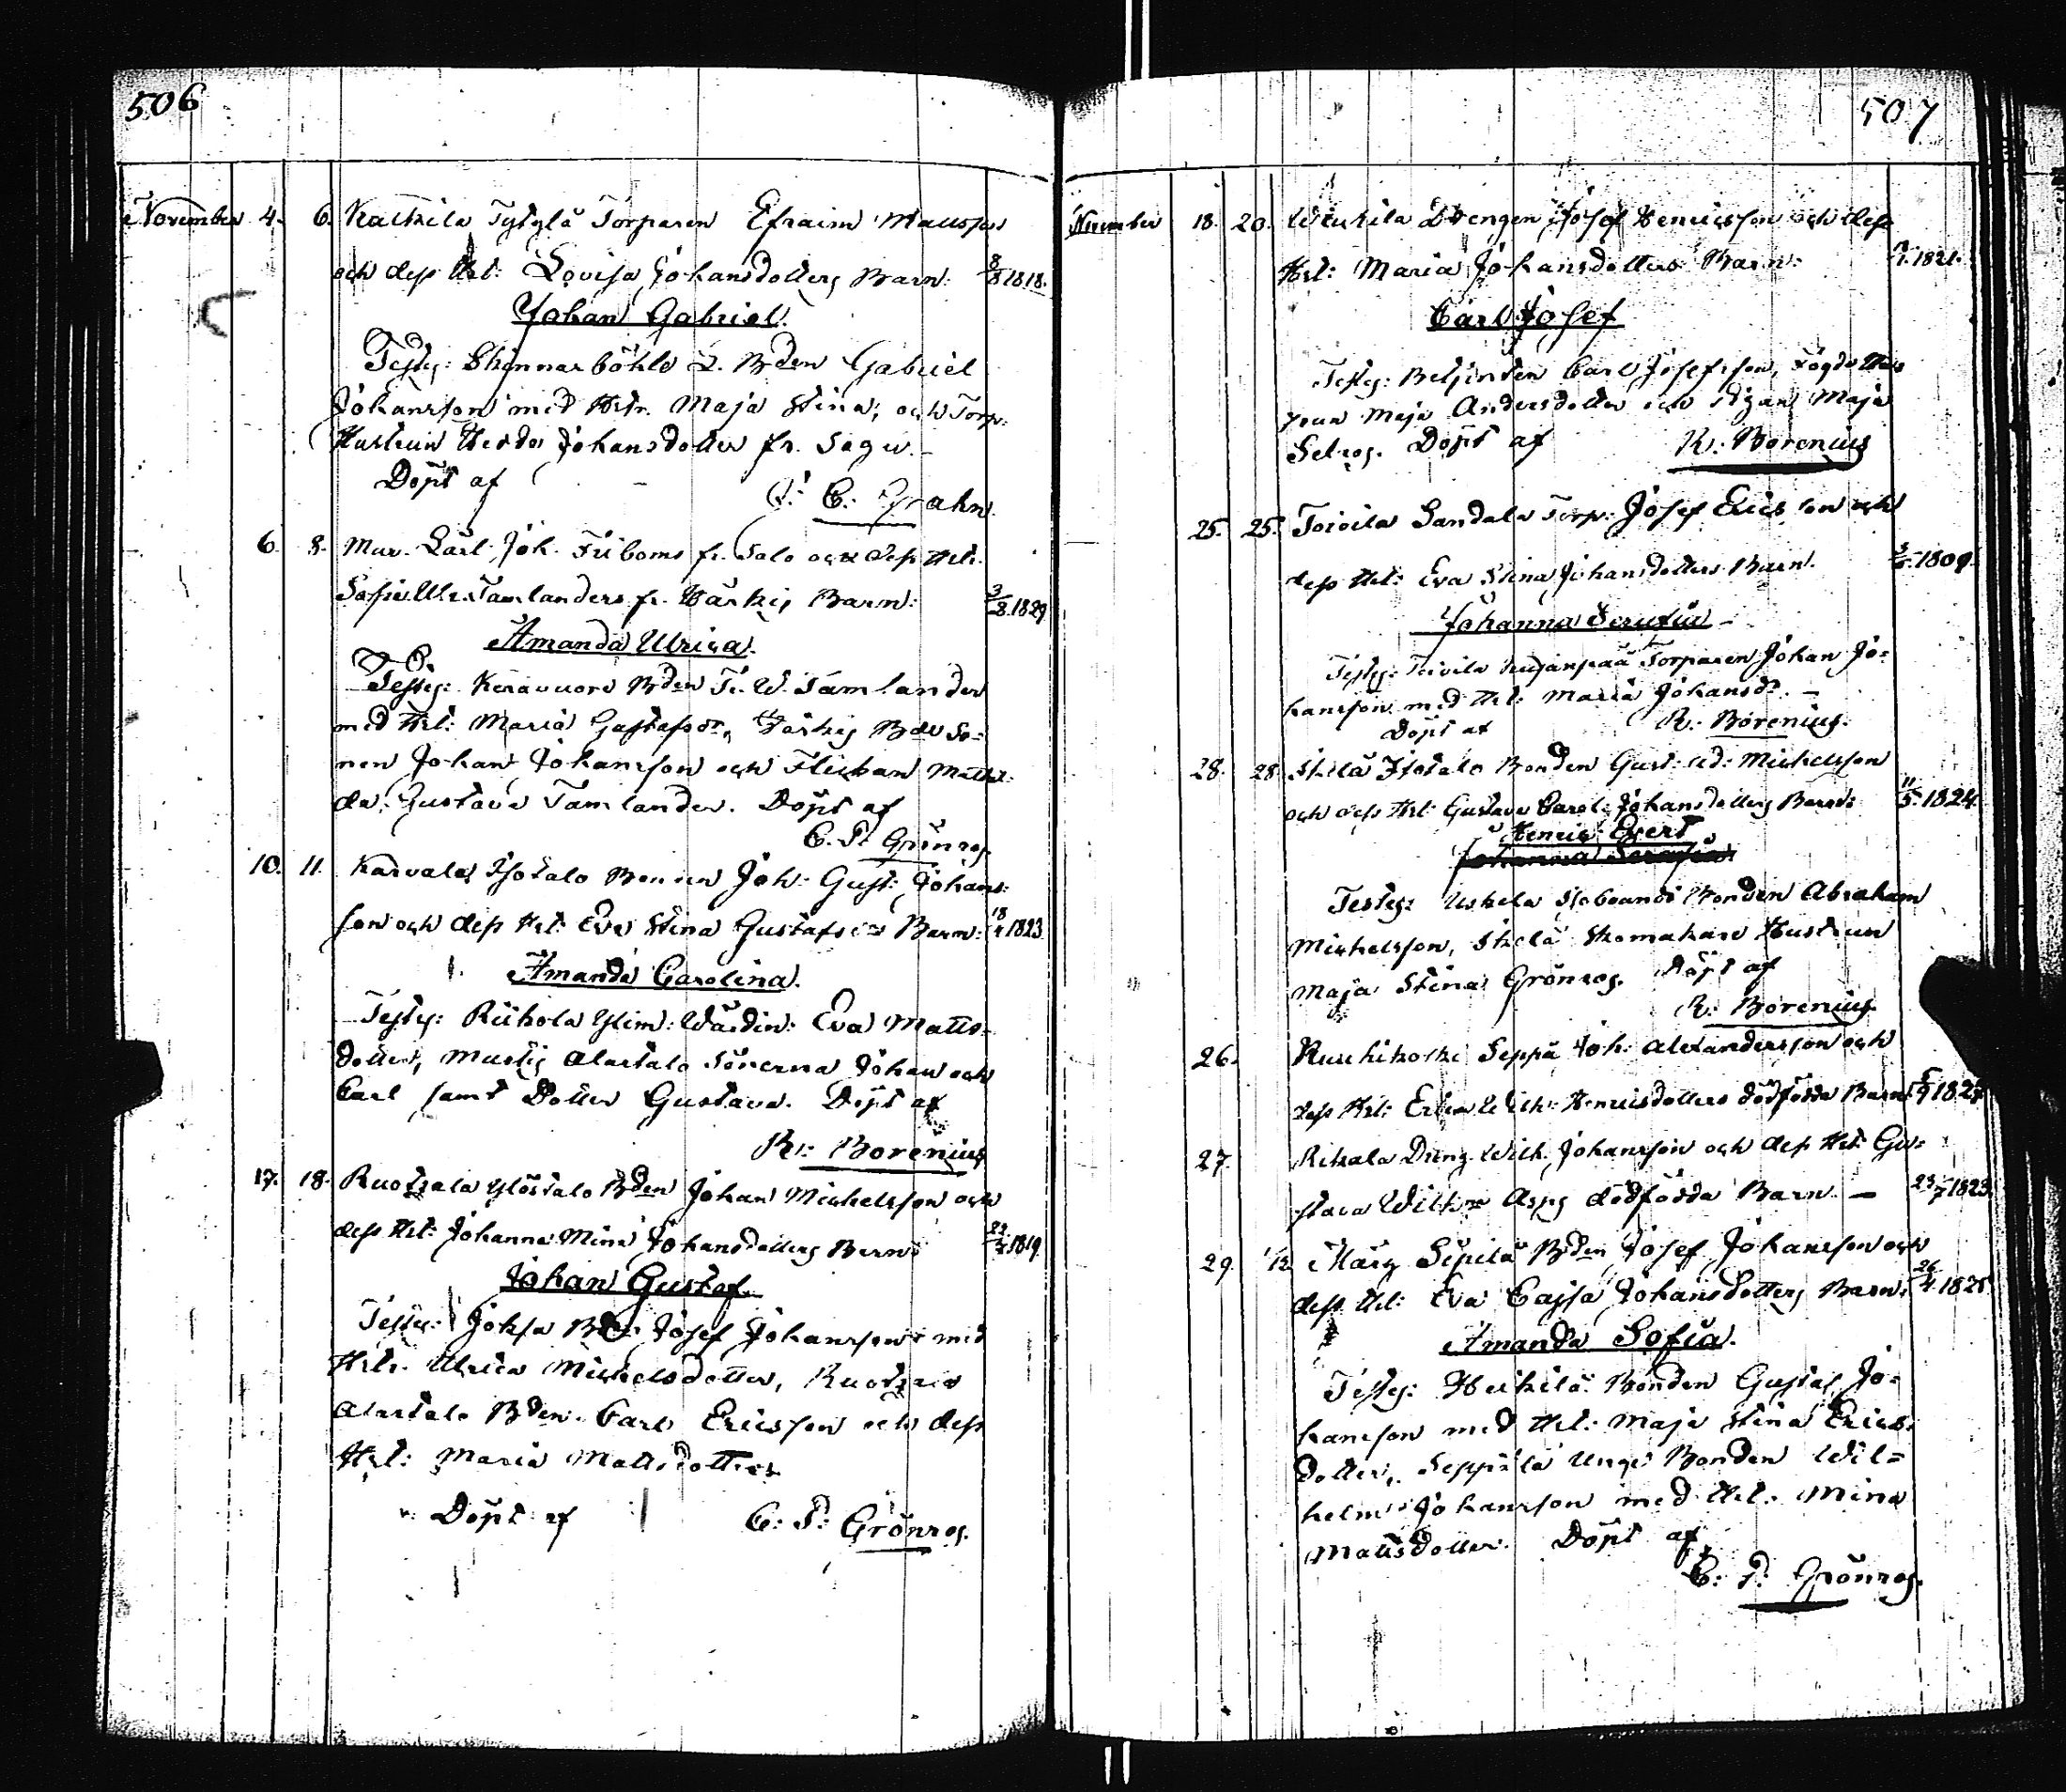 506
November 4. 6. Kaukila Tytylä Torparen Efraim Matsson
och dess Hst: Lovisa Johansdotters Barn: 8/8 1818.
Johan Gabriel.
Testes: Skinnarböhle L. Bden Gabriel
Johansson med Hstr. Maja Stina, och Torp.
Hustrun Hedda Johansdotter fr. Sagu.
Döpt af
C. Grahn.
6. 8. Mur. Lärl. Joh. Friboms fr. Salo och dess Hst.
Sofia Ulr. Tamlanders fr. Härkij Barn: 3/8 1829
Amanda Ulrica.
Testes: Keravuore Bden F. W. Tamlander
med Hst: Maria Gustafsdr, Härkij Bde So-
nen Johan Johansson och Flickan Mathil-
da Gustava Tamlander. Döpt af
C. P. Grönroos.
10. 11. Karvala Isotalo Bonden Joh: Gust: Johans-
son och dess Hst: Eva Stina Gustafsdrs Barn: 18/4 1823
Amanda Carolina.
Testes: Riihola Ylim: Värdin: Eva Matts-
dotter, Mustij Alastalo Sönerna Johan och
Carl samt Dotter Gustava. Döpt af
R: Borenius
17. 18. Ruotsala Ylöstalo Bden Johan Michelsson och
dess Hst: Johanna Mina Johansdotters Barn: 1819
Johan Gustaf
Testes: Joksa Bden Josef Johansson med
Hstr. Ulrica Michelsdotter, Ruotsala
Alastalo Bden Carl Ericsson och dess
Hst: Maria Mattsdotter
Döpt af C: P: Grönroos.
507
November 18. 20. Drengen Josef Henricsson och dess
Hst: Maria Johansdotters Barn: 1821.
Carl Josef
Testes: Betjenten Carl Josefsson, Fogdehus
Maja Andersdotter och Pigan Maja
Selroos. Döpt af R. Borenius
25. 25. Toivila Sandala Torp: Josef Ericsson och
dess Hst: Eva Stina Johansdotters Barn. 1809.
Johanna Serafia
Testes: Toivila Torparen Johan Jo-
hansson med Hst: Maria Johansdr.
Döpt af R. Borenius.
28. 28. Isotalo Bonden Gust: Ad: Michelsson
och dess Hst: Gustava Carol: Johansdotters Barn: 11/5 1824.
Henric Evert
Johanna Serafia
Testes: Uskela Bonden Abraham
Michelsson, Skomakare Hustrun
Maja Stina Grönroos. Döpt af
R: Borenius
26. Seppä Joh. Alexandersson och
dess Hst: Erica Wilh: Henricsdotters dödfödda Barn
27. Ritsala Dreng. Wilh. Johansson och dess Hst: Gu-
stava Wilh:na Asps dödfödda Barn. — 23/7 1823
29. 1/12 Märy Sipilä Bden Josef Johansson och
dess Hst: Eva Cajsa Johansdotters Barn: 26/4 1825.
Amanda Sofia.
Testes: Heikilä Bonden Gustaf Jo-
hansson med Hst: Maja Stina Erics-
dotter, Seppälä Unge Bonden Wil-
helm Johansson med Hst: Mina
Mattsdotter. Döpt af
C: P: Grönroos.